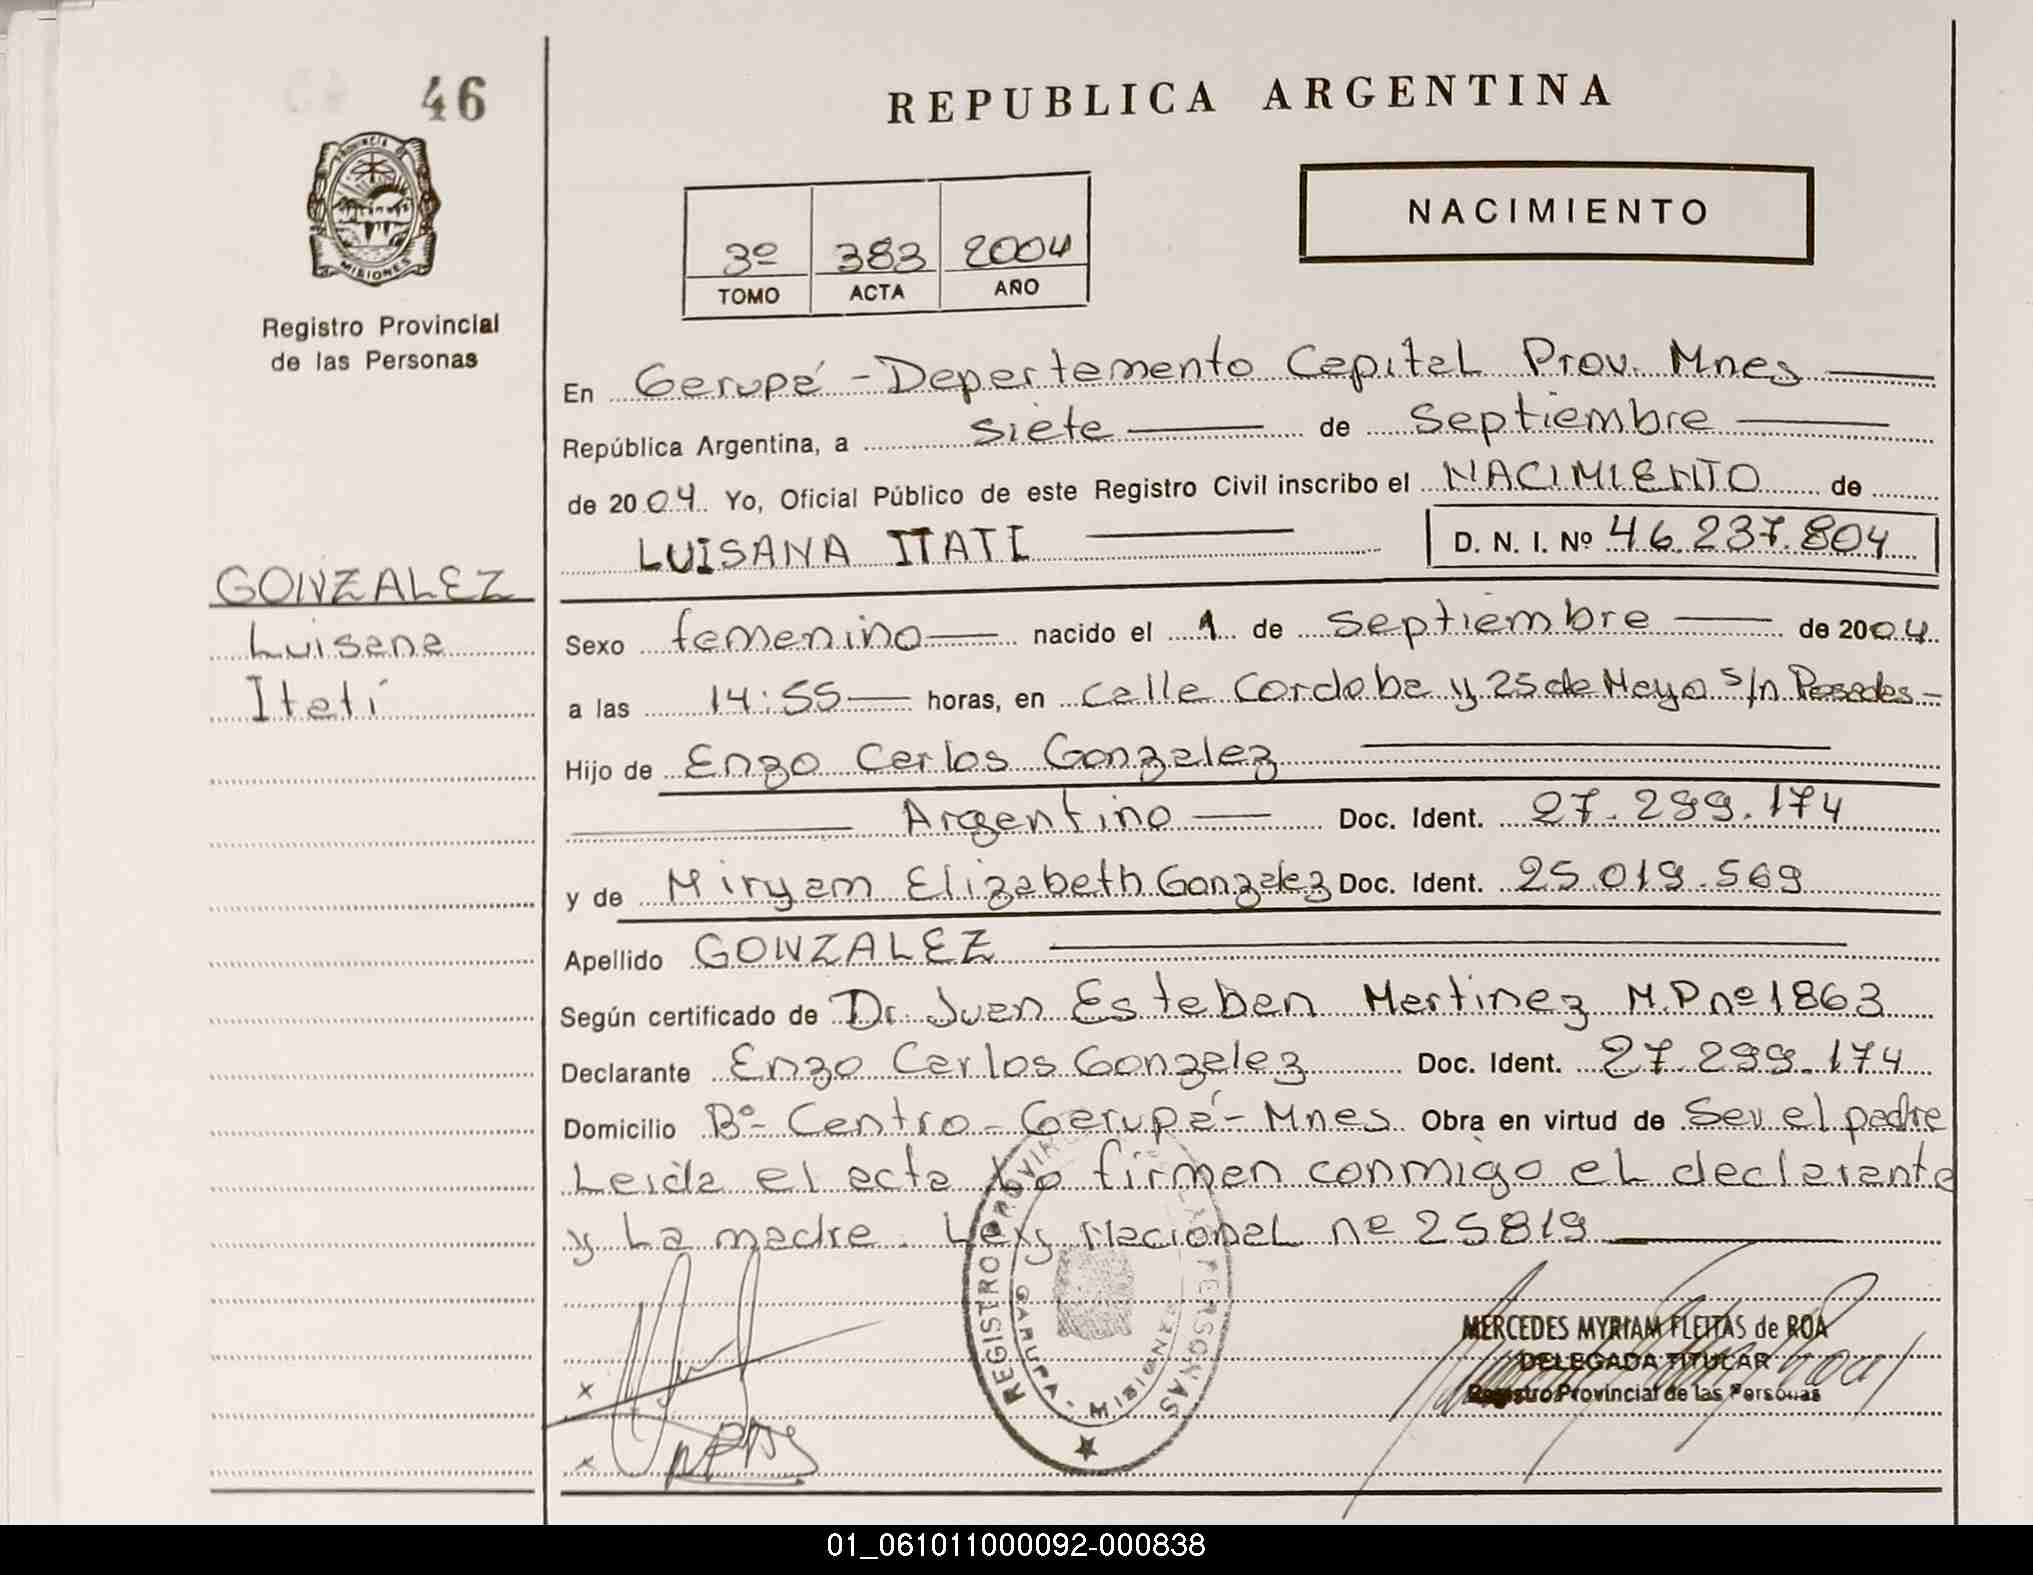 46
REPUBLICA ARGENTINA
PROVINCIA DE
MISIONES
NACIMIENTO
3º 383 2004
TOMO ACTA AÑO
Registro Provincial
de las Personas
En Garupá - Departamento Capital Prov. Mnes
República Argentina, a siete de septiembre
de 2004. Yo, Oficial Público de este Registro Civil inscribo el NACIMIENTO de
LUISANA ITATI D. N. I. Nº 46.237.804
GONZALEZ
Luisana
Itatí
Sexo femenino nacido el 1 de septiembre de 2004
a las 14:55 horas, en calle Cordoba y 25 de Mayo s/n Posadas
Hijo de Enzo Carlos Gonzalez
Argentino Doc. Ident. 27.299.174
y de Miryam Elizabeth Gonzalez Doc. Ident. 25.019.569
Apellido GONZALEZ
Según certificado de Dr. Juan Esteban Martinez M.P nº 1863
Declarante Enzo Carlos Gonzalez Doc. Ident. 27.299.174
Domicilio Bº - Centro - Garupá - Mnes Obra en virtud de Ser el padre
Leida el acta la firman conmigo el declarante
y La madre. Ley Nacional nº 25819
REGISTRO PROVINCIAL PERSONAS
GARUPA - MISIONES
MERCEDES MYRIAM FLEITAS de ROA
DELEGADA TITULAR
Registro Provincial de las Personas
x
x
01_061011000092-000838